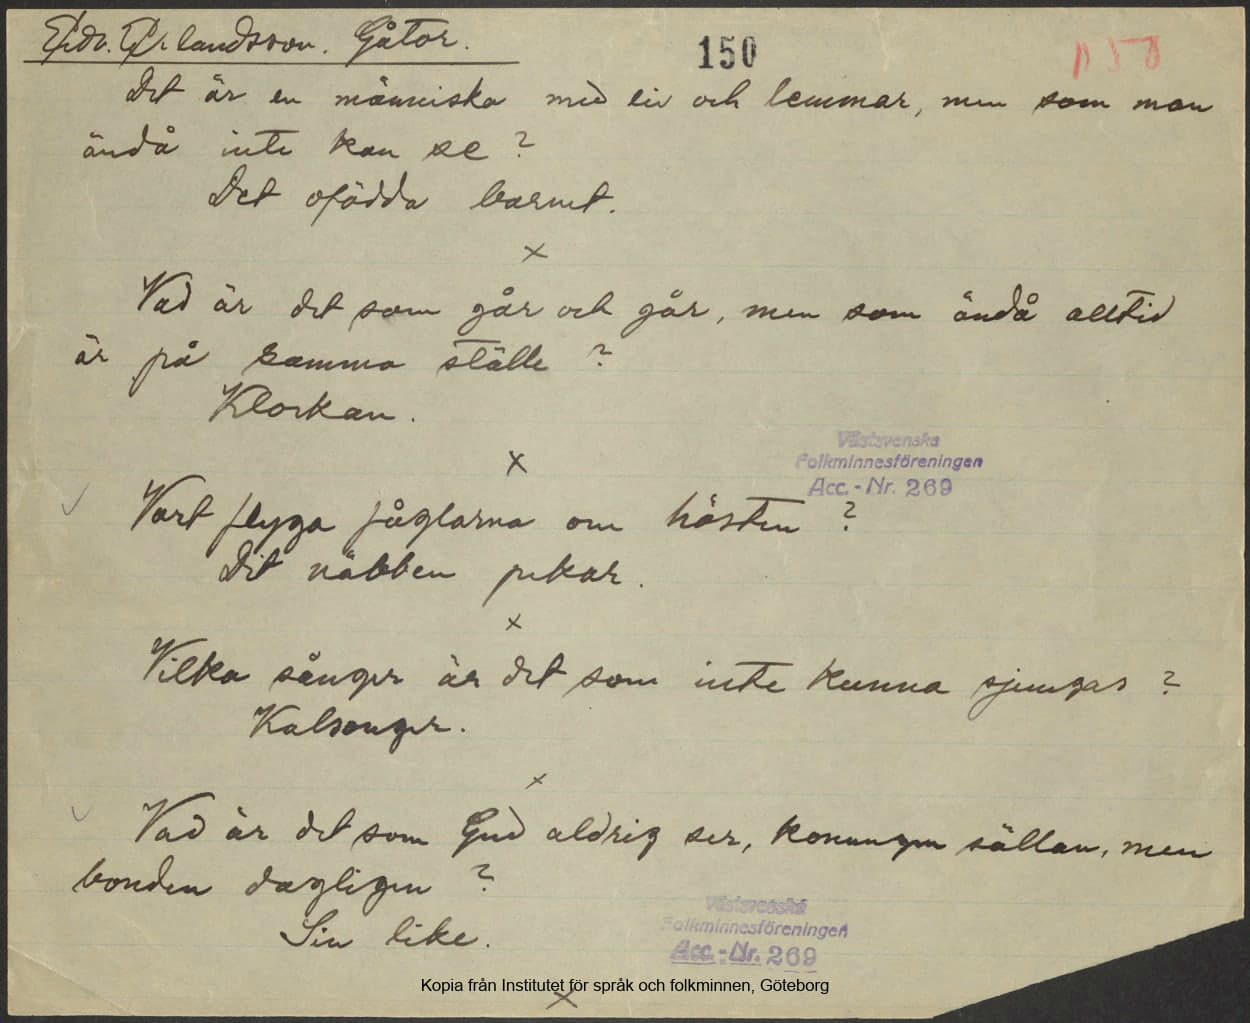 Edv. Erlandsson. Gåtor.
150
D58
Det är en människa med liv och lemmar, men som man
ändå inte kan se?
Det ofödda barnet.
x
Vad är det som går och går, men som ändå alltid
är på samma ställe?
Klockan.
Västsvenska
Folkminnesföreningen
Acc.-Nr. 269
x
Vart flyga fåglarna om hösten?
Dit näbben pekar.
x
Vilka sånger är det som inte kunna sjungas?
Kalsonger.
x
Vad är det som Gud aldrig ser, konungen sällan, men
bonden dagligen?
Sin like.
Västsvenska
Folkminnesföreningen
Acc.-Nr. 269
Kopia från Institutet för språk och folkminnen, Göteborg
x